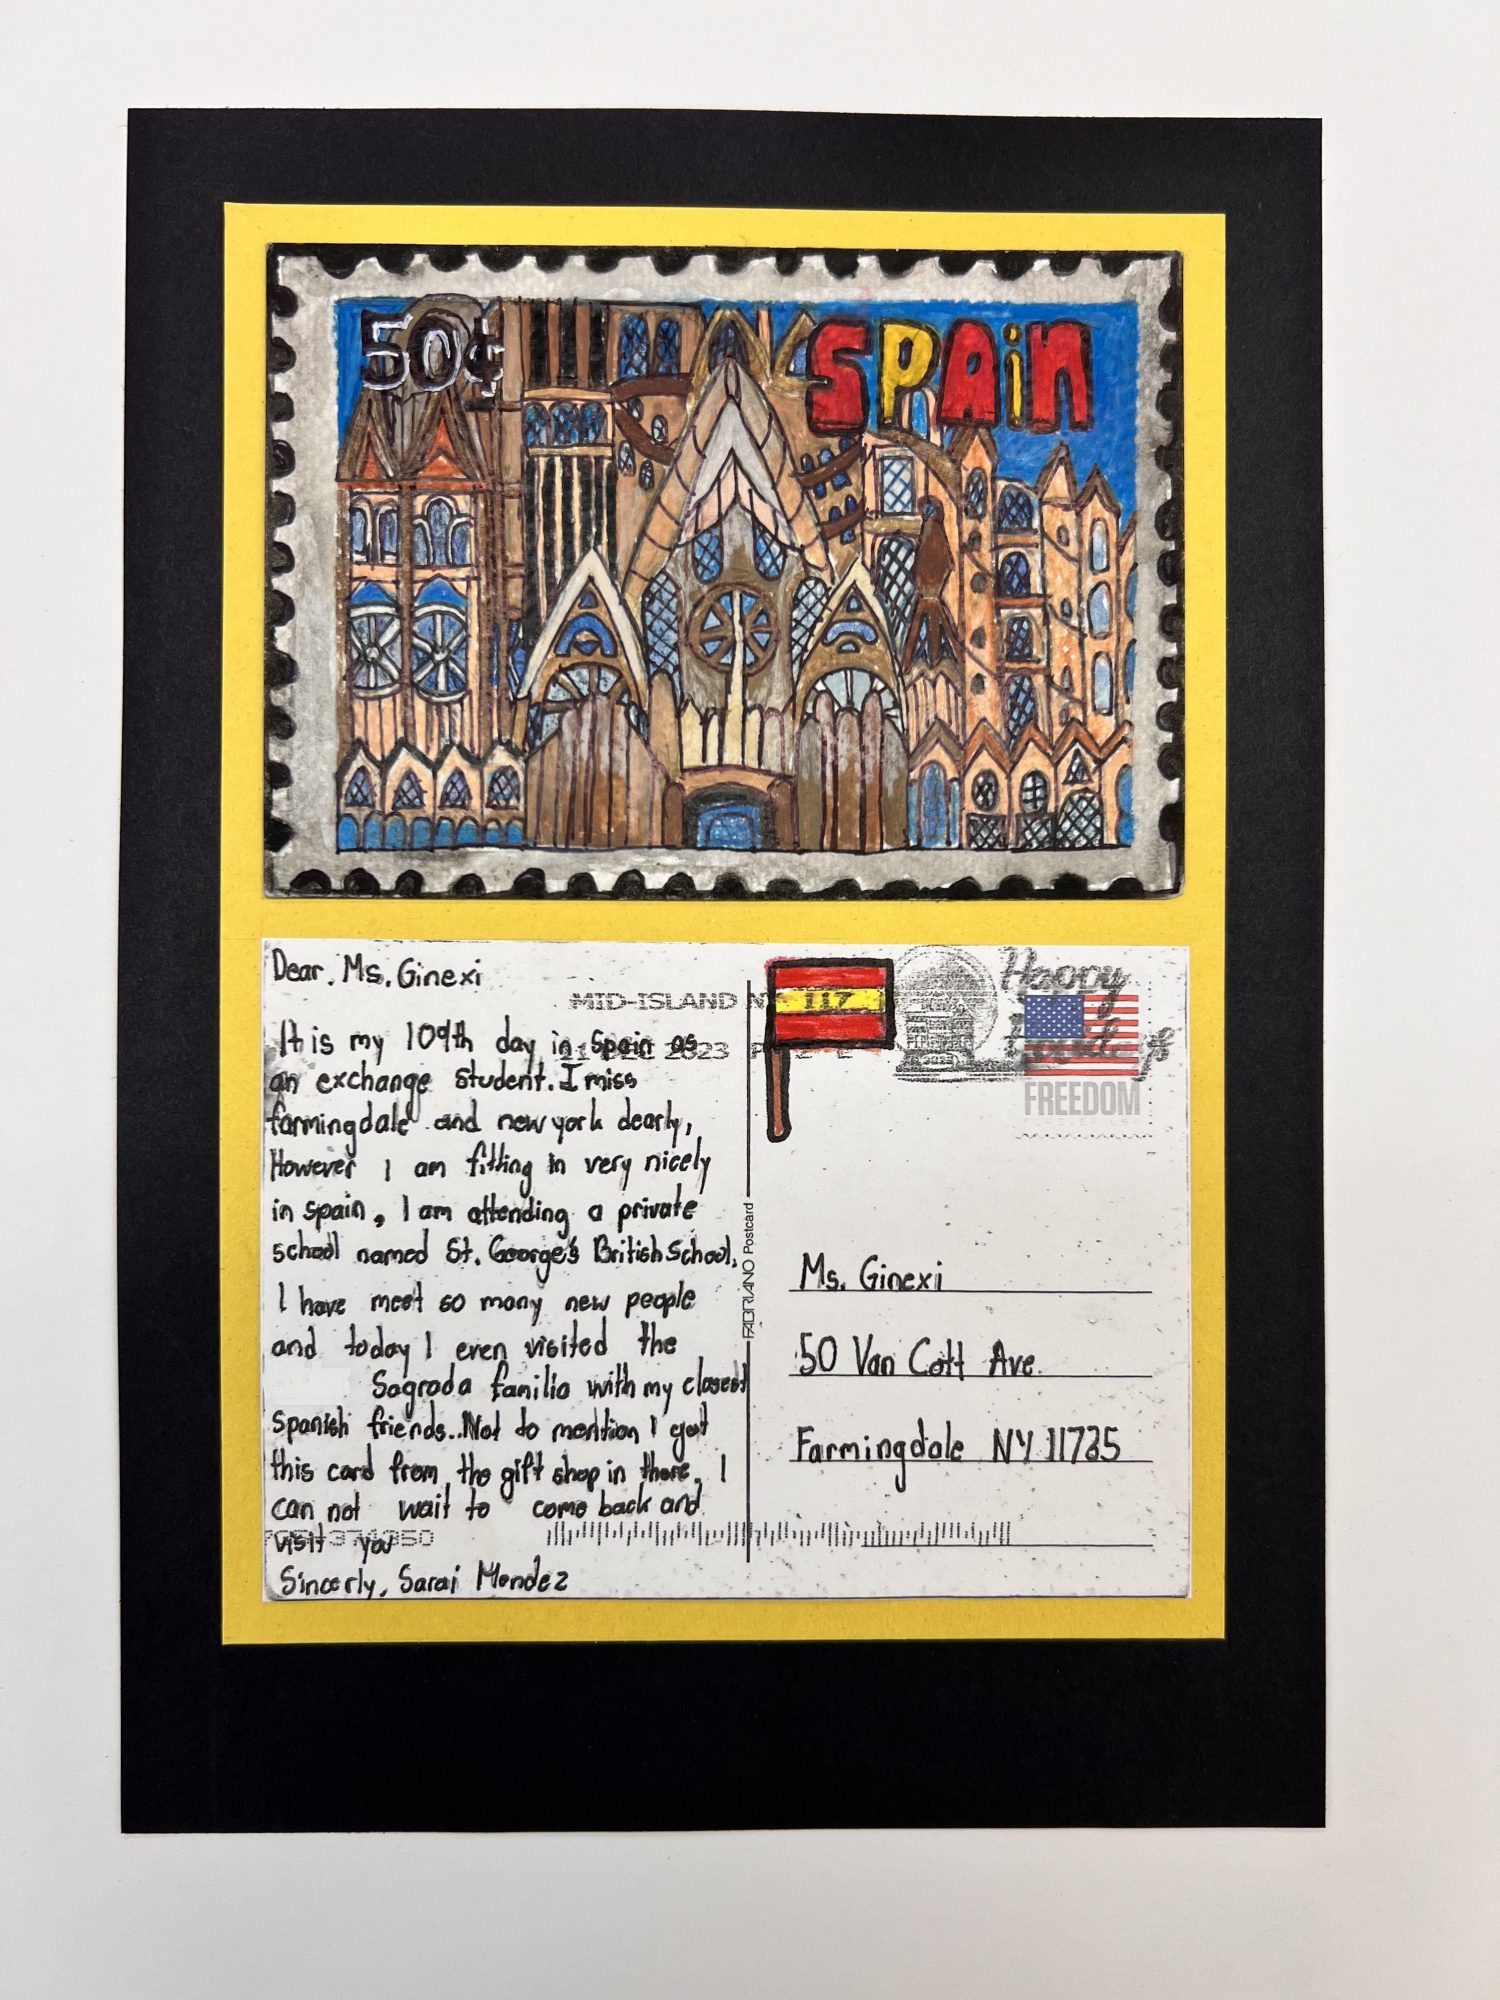 50¢
SPAiN
Dear. Ms. Ginexi
It is my 109th day in Spain as
an exchange student. I miss
farmingdale and new york dearly,
However I am fitting in very nicely
in spain, I am attending a private
school named St. George's British School.
I have meet so many new people
and today I even visited the
Sagrada familia with my closest
Spanish friends..Not to mention I got
this card from the gift shop in there. I
can not wait to come back and
visit you
Sincerly, Sarai Mendez
MID-ISLAND NY 117
2023
Happy
FREEDOM
FOREVER USA
FABRIANO Postcard
Ms. Ginexi
50 Van Cott Ave.
Farmingdale NY 11735